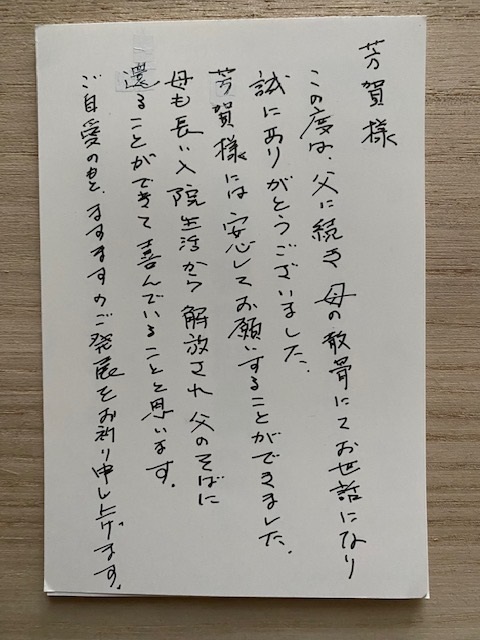 芳賀様
この度は、父に続き 母の散骨にてお世話になり
誠にありがとうございました。
芳賀様には安心してお願いすることができました。
母も長い入院生活から解放され 父のそばに
還ることができて喜んでいることと思います。
ご自愛のもと、ますますのご発展をお祈り申し上げます。